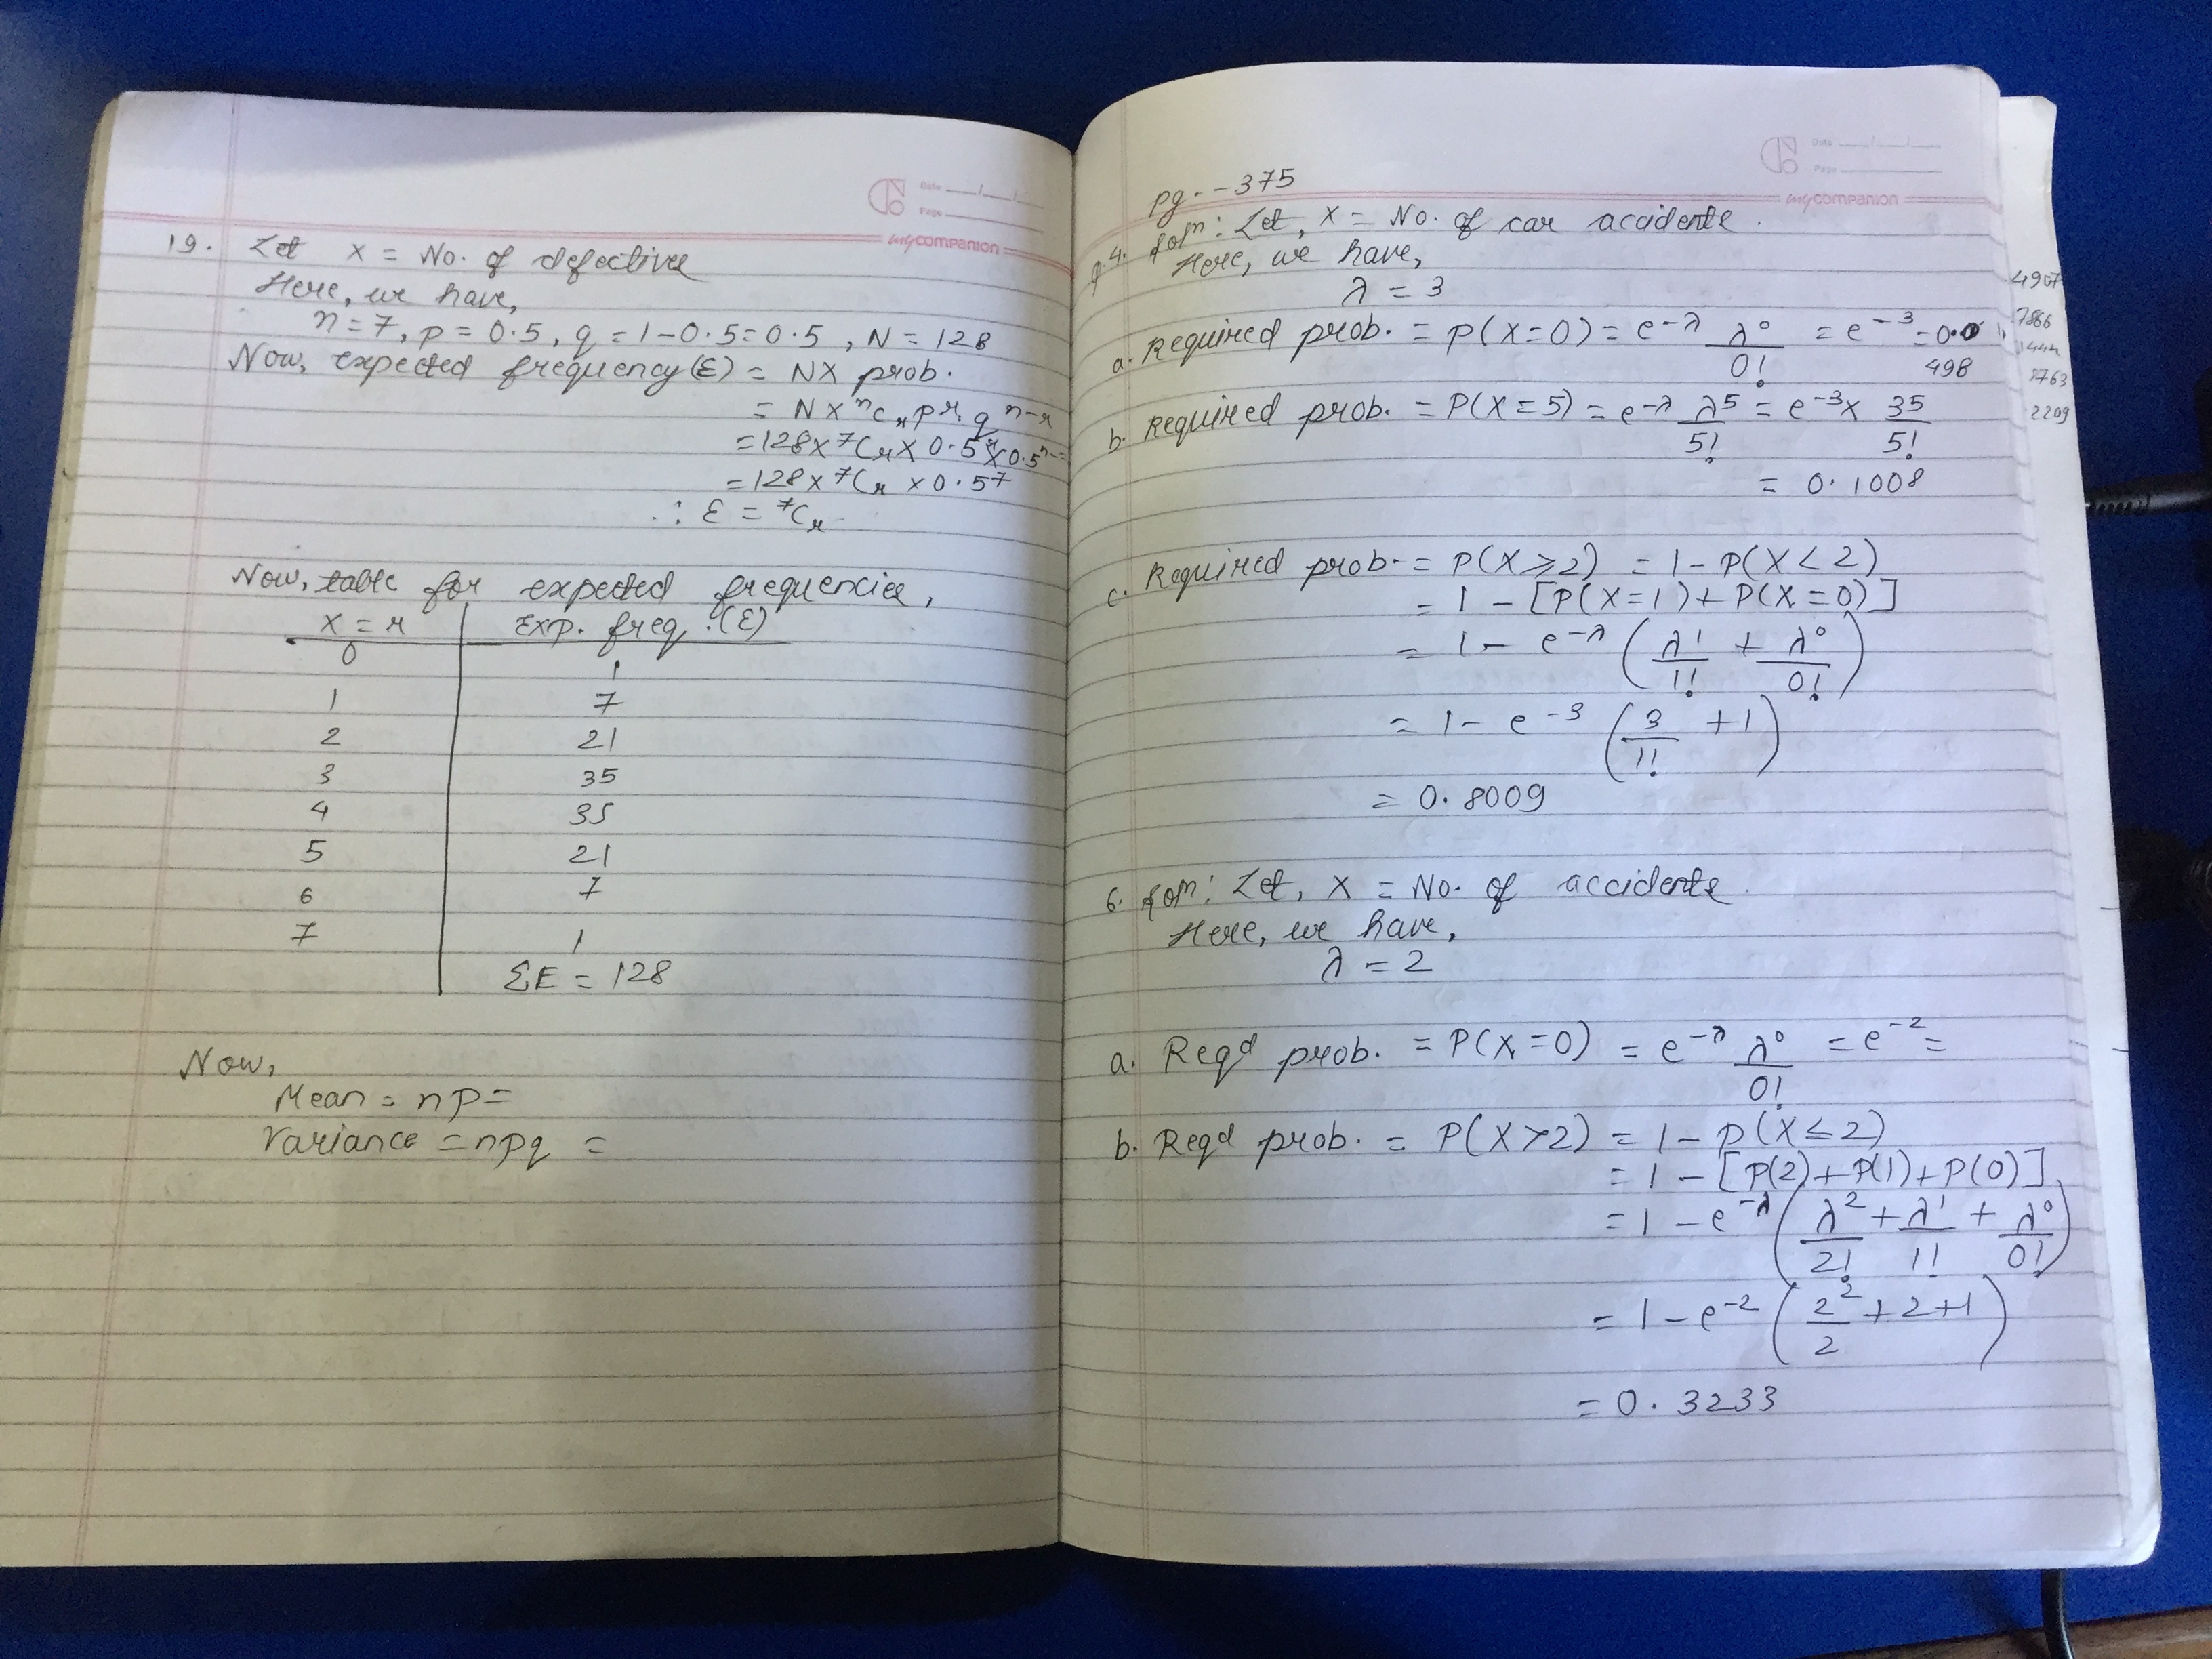 mycompanion
Date
Page
19. Let x = No. of defective
Here, we have,
n = 7, p = 0.5, q = 1 - 0.5 = 0.5, N = 128
Now, expected frequency(E) = N x prob.
= N x ⁿCᵣ pʳ. q ⁿ⁻ʳ
= 128 x ⁷Cᵣ x 0.5ʳ x 0.5⁷⁻
= 128 x ⁷Cᵣ x 0.5⁷
∴ E = ⁷Cᵣ
Now, table for expected frequencies,
x = r Exp. freq. (E)
0 1
1 7
2 21
3 35
4 35
5 21
6 7
7 1
ΣE = 128
Now,
Mean = np =
Variance = npq =
mycompanion
Date
Page
pg. - 375
q.4. Solⁿ: Let, x = No. of car accidents.
Here, we have,
λ = 3
a. Required prob. = p(x=0) = e⁻λ λ⁰/0! = e⁻³ = 0.0
498
b. Required prob. = P(x=5) = e⁻λ λ⁵/5! = e⁻³ x 35/5!
= 0.1008
c. Required prob. = P(x ≥ 2) = 1 - P(x < 2)
= 1 - [P(x=1) + P(x=0)]
= 1 - e⁻λ (λ¹/1! + λ⁰/0!)
= 1 - e⁻³ (3/1! + 1)
= 0.8009
6. Solⁿ: Let, x = No. of accidents.
Here, we have,
λ = 2
a. Reqd prob. = P(x=0) = e⁻λ λ⁰/0! = e⁻² =
b. Reqd prob. = P(x>2) = 1 - P(x ≤ 2)
= 1 - [P(2) + P(1) + P(0)]
= 1 - e⁻λ (λ²/2! + λ¹/1! + λ⁰/0!)
= 1 - e⁻² (2²/2 + 2 + 1)
= 0.3233
4907
2209